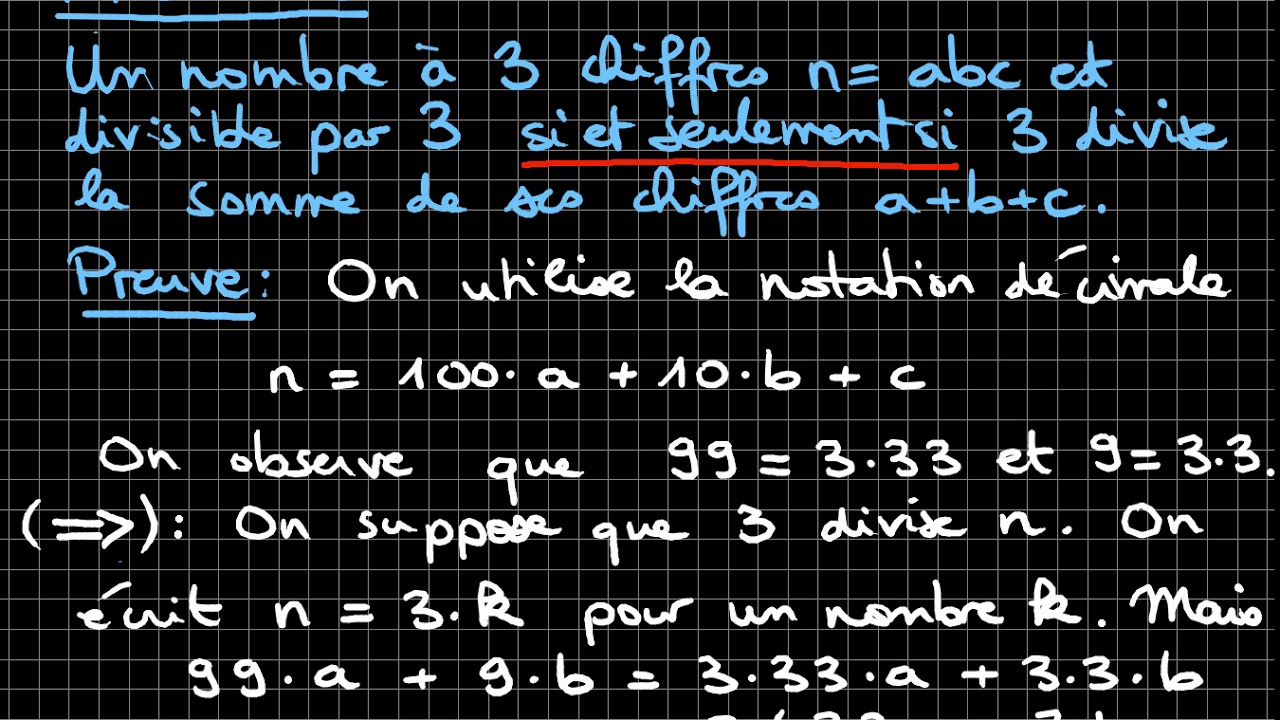 Un nombre à 3 chiffres n = abc est
divisible par 3 si et seulement si 3 divise
la somme de ses chiffres a+b+c.
Preuve: On utilise la notation décimale
n = 100·a + 10·b + c
On observe que 99 = 3·33 et 9 = 3·3.
(⟹): On suppose que 3 divise n. On
écrit n = 3·k pour un nombre k. Mais
99·a + 9·b = 3·33·a + 3·3·b